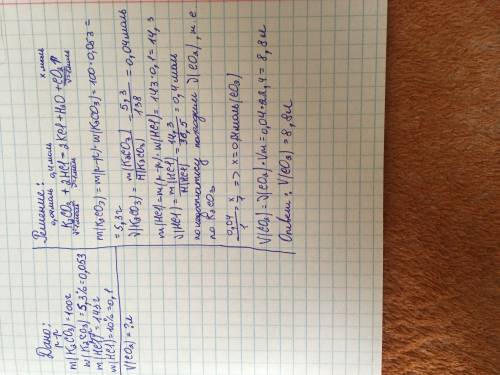 Дано:
р-р
m(K₂CO₃)=100г
w(K₂CO₃)=5,3%=0,053
m(HCl)р-р=143г
w(HCl)=10%=0,1
V(CO₂)=?л
Решение:
0,04моль 0,4моль x моль
K₂CO₃ + 2HCl = 2KCl + H₂O + CO₂↑
m(K₂CO₃)=m(р-р)·w(K₂CO₃)=100·0,053=
=5,3г
ν(K₂CO₃)=m(K₂CO₃)/M(K₂CO₃)=5,3/138=0,04моль
m(HCl)=m(р-р)·w(HCl)=143·0,1=14,3
ν(HCl)=m(HCl)/M(HCl)=14,3/36,5=0,4моль
по недостатку находим ν(CO₂), т.е.
по K₂CO₃
0,04/1=x/1 => x=0,04моль(CO₂)
V(CO₂)=ν(CO₂)·Vm=0,04·22,4=8,8л
Ответ: V(CO₂)=8,8л